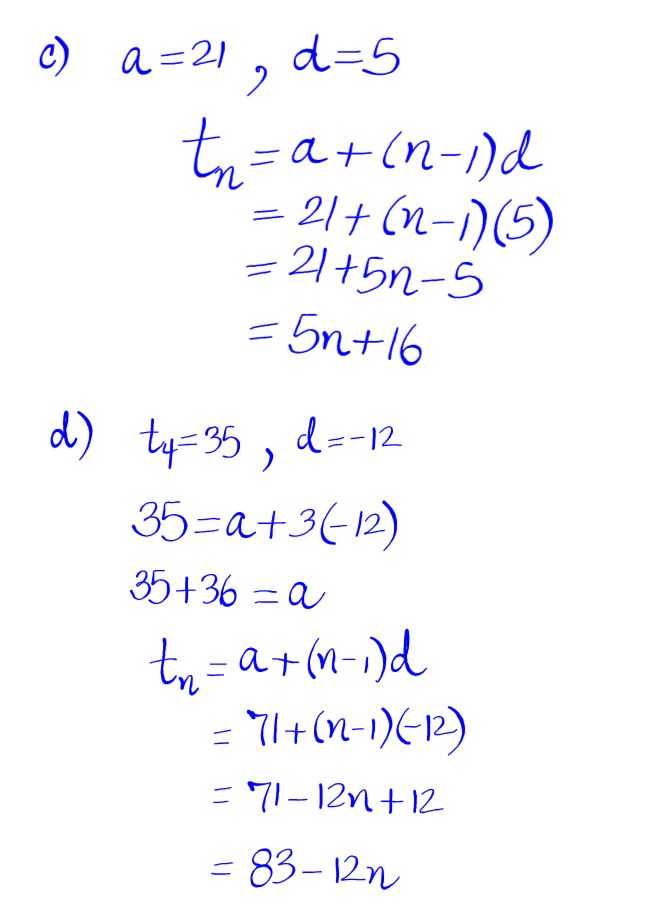 c) a=21, d=5
tₙ=a+(n-1)d
=21+(n-1)(5)
=21+5n-5
=5n+16
d) t₄=35, d=-12
35=a+3(-12)
35+36=a
tₙ=a+(n-1)d
=71+(n-1)(-12)
=71-12n+12
=83-12n